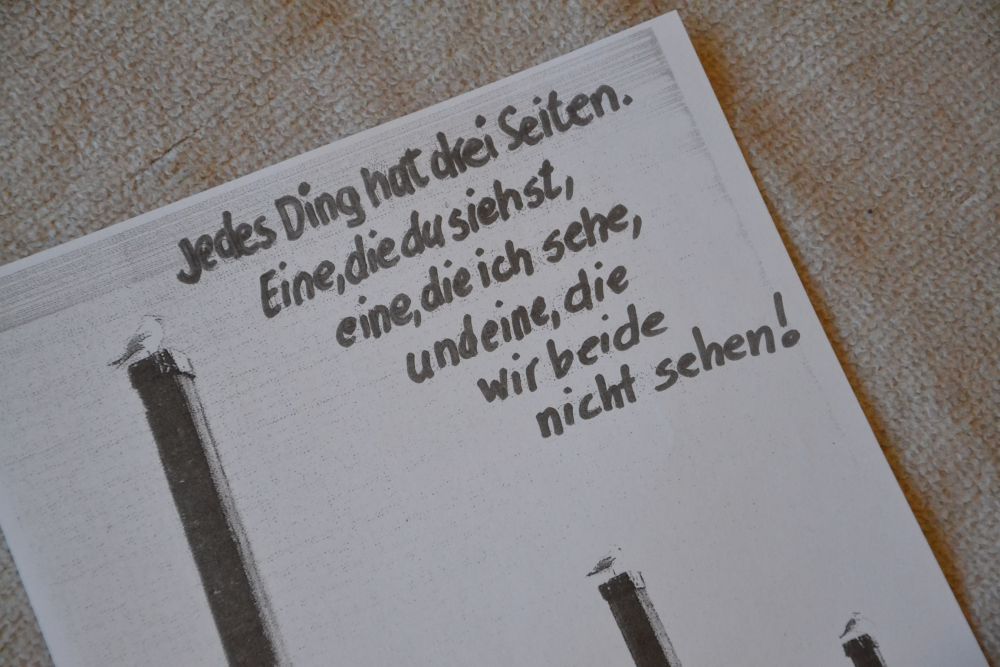 Jedes Ding hat drei Seiten.
Eine, die du siehst,
eine, die ich sehe,
und eine, die
wir beide
nicht sehen!